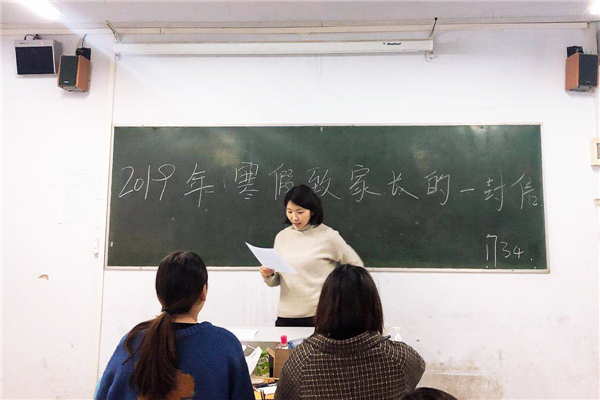 2019年寒假致家长的一封信
134.